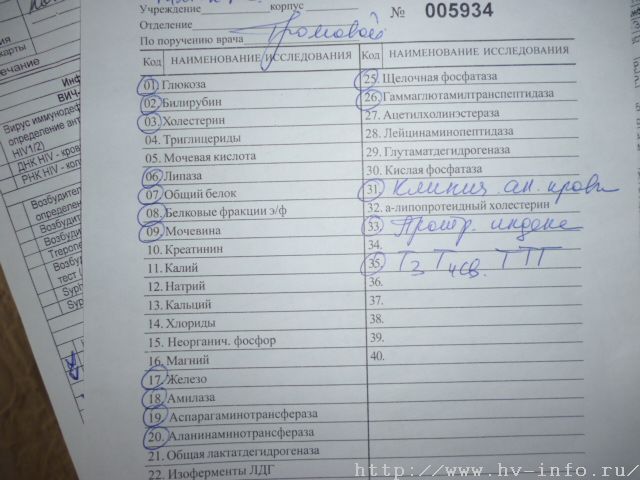 Учреждение корпус
Отделение
№ 005934
По поручению врача Громовой
Код НАИМЕНОВАНИЕ ИССЛЕДОВАНИЯ
01. Глюкоза
02. Билирубин
03. Холестерин
04. Триглицериды
05. Мочевая кислота
06. Липаза
07. Общий белок
08. Белковые фракции э/ф
09. Мочевина
10. Креатинин
11. Калий
12. Натрий
13. Кальций
14. Хлориды
15. Неорганич. фосфор
16. Магний
17. Железо
18. Амилаза
19. Аспарагаминотрансфераза
20. Аланинаминотрансфераза
21. Общая лактатдегидрогеназа
22. Изоферменты ЛДГ
Код НАИМЕНОВАНИЕ ИССЛЕДОВАНИЯ
25. Щелочная фосфатаза
26. Гаммаглютамилтранспептидаза
27. Ацетилхолинэстераза
28. Лейцинаминопептидаза
29. Глутаматдегидрогеназа
30. Кислая фосфатаза
31. Клинич. ан. крови
32. а-липопротеидный холестерин
33. Протр. индекс
34.
35. Т3 Т4св. ТТГ
36.
37.
38.
39.
40.
карты
Вирус иммунодеф
определение ант
HIV1/2)
ДНК HIV - кров
РНК HIV - кол
Возбудител
определен
Возбуди
Возбуд
Trepone
Возбу
тест (
Syph
Syp
http://www.hv-info.ru/